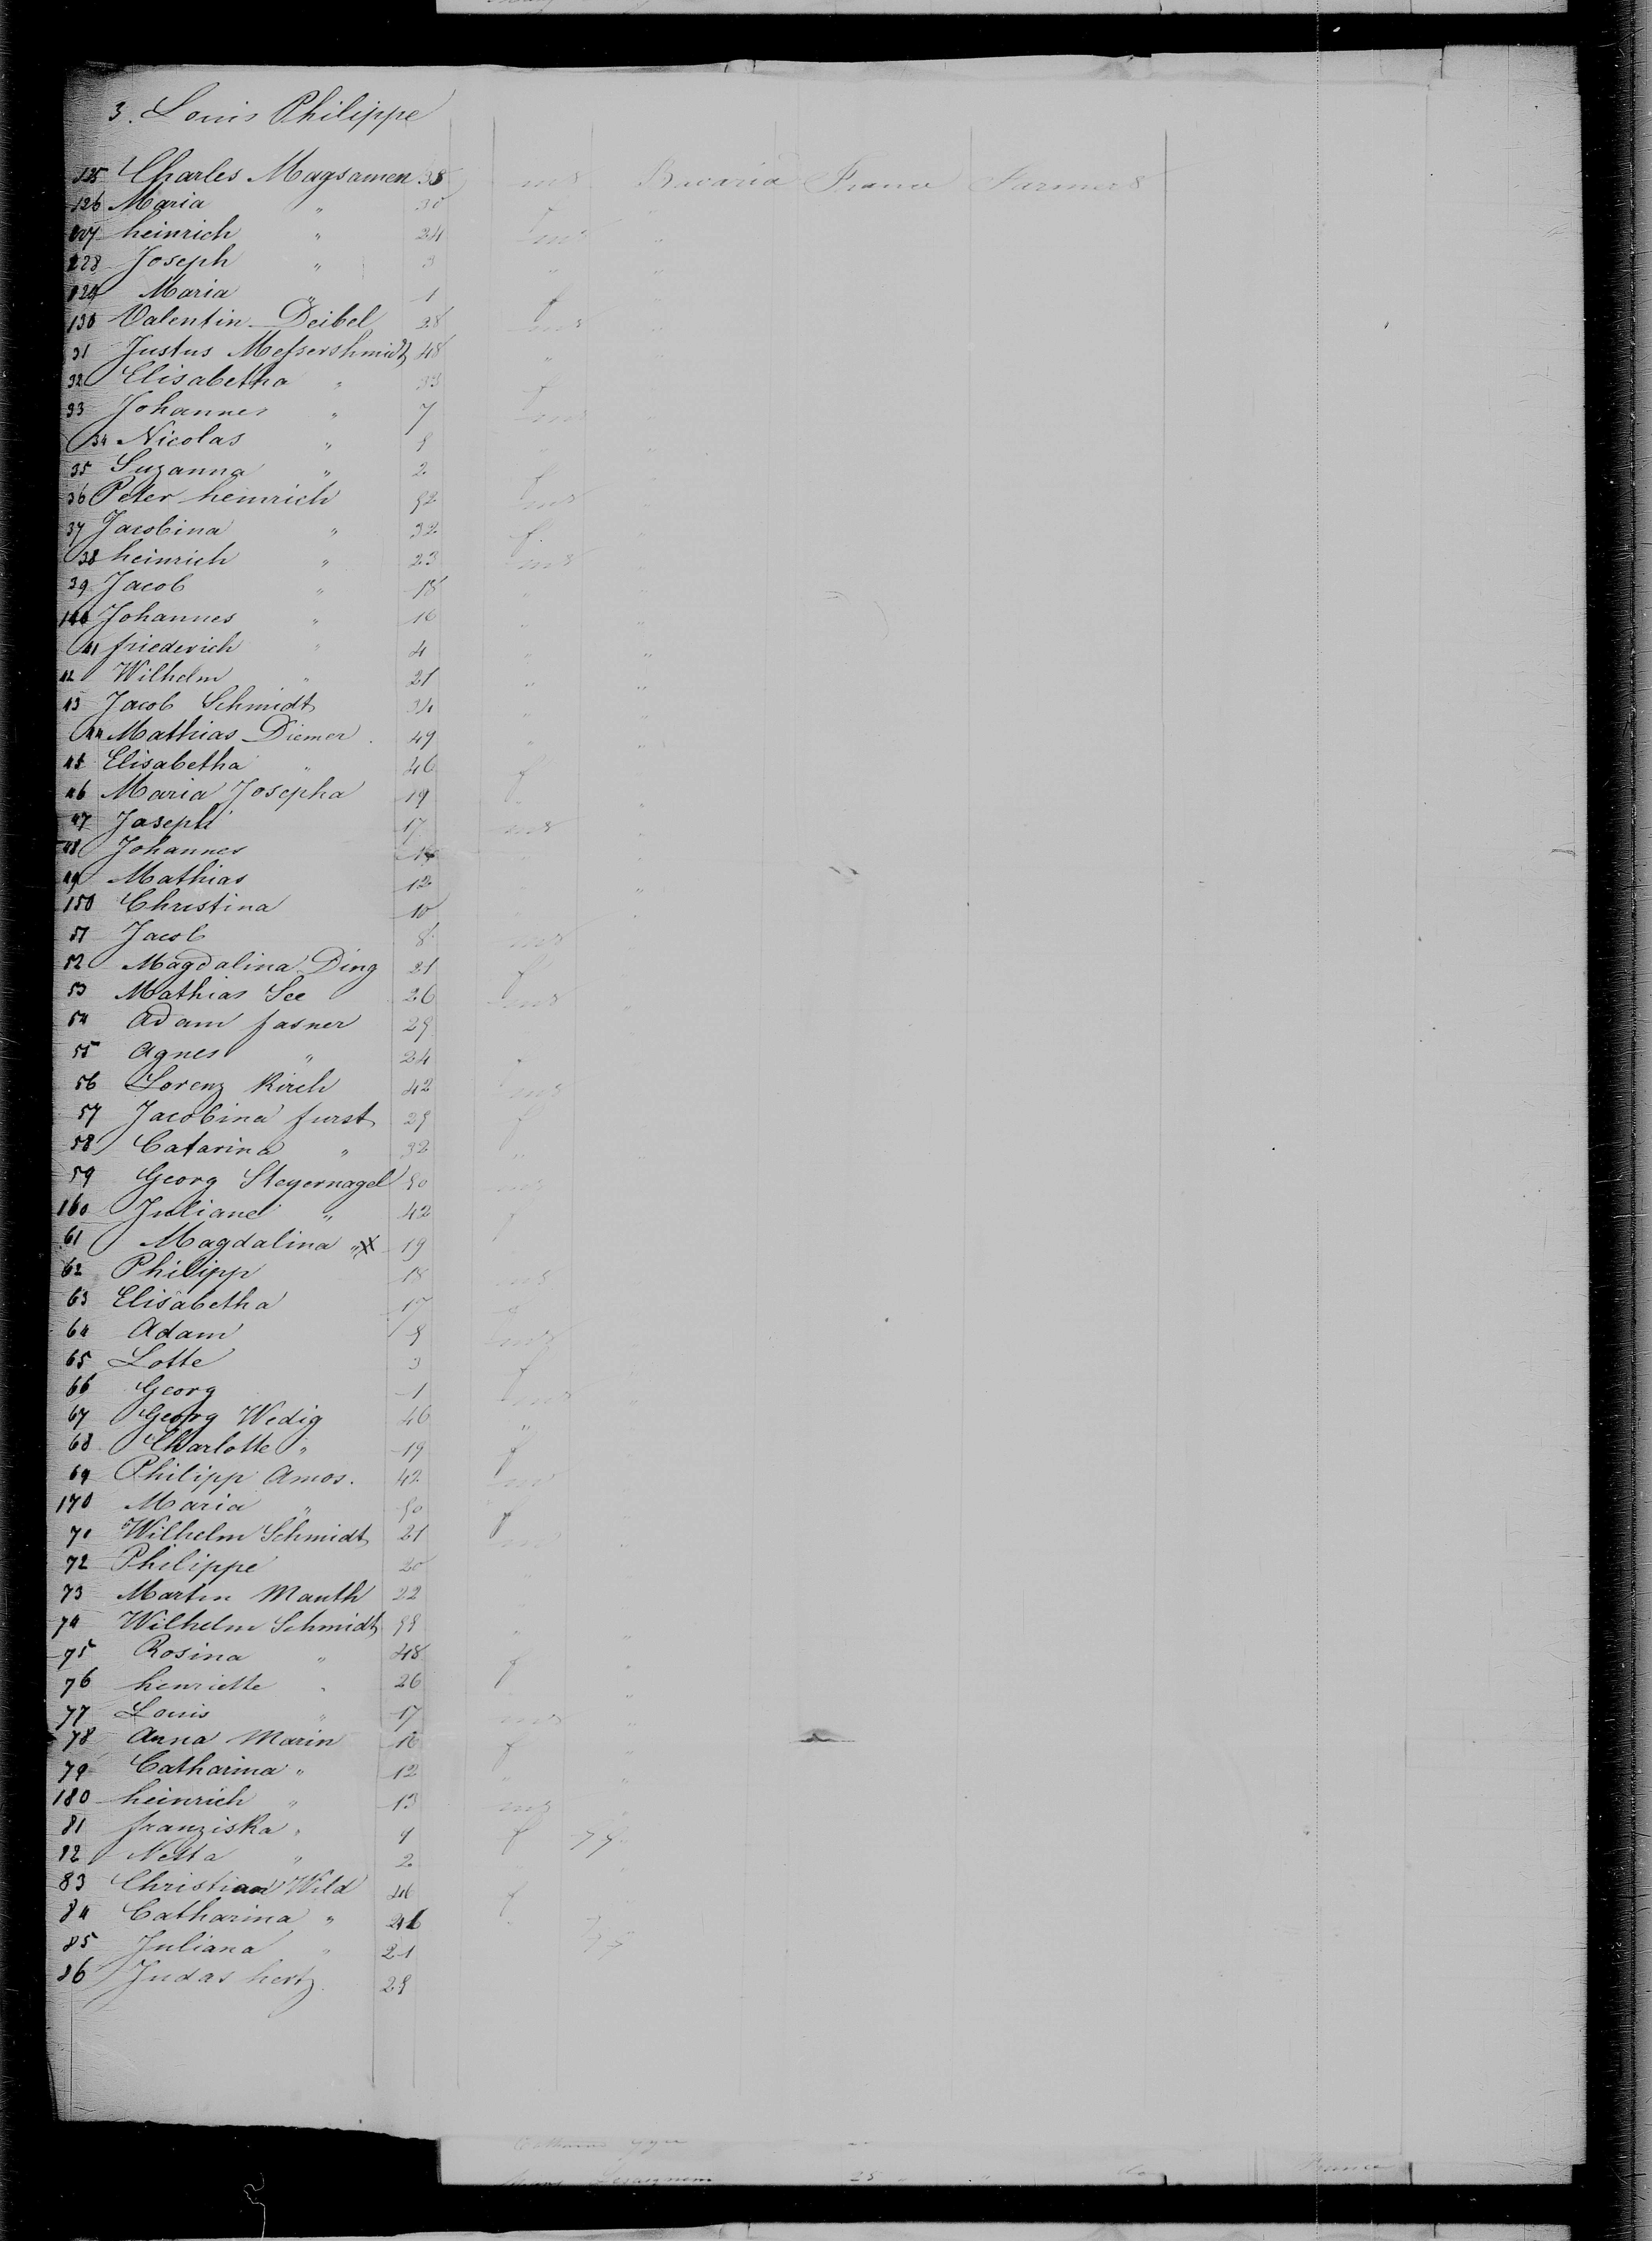 3. Louis Philippe
125 Charles Magsamen 38 ms Bavaria France Farmers
126 Maria " 30
127 heinrich " 24 ms "
128 Joseph " 3 " "
129 Maria " 1 f "
130 Valentin Deibel 28 ms "
31 Justus Messershmidt 48 "
32 Elisabetha " 33 f
33 Johannes " 7 ms
34 Nicolas " 5 " "
35 Suzanna " 2 f
36 Peter heinrich 52 ms
37 Jacobina " 32 f. "
38 heinrich " 23 ms
39 Jacob " 18 "
140 Johannes " 16 " "
41 friederich " 4 " "
42 Wilhelm " 21 " "
43 Jacob Schmidt 34 " "
44 Mathias Diemer 49 " "
45 Elisabetha " 46 f
46 Maria Josepha 19 " "
47 Joseph 17 ms
48 Johannes 14
49 Mathias 12 "
150 Christina 10
51 Jacob 8 ms
52 Magdalina Ding 21 f
53 Mathias See 26 ms
54 Adam fasner 25
55 Agnes " 24
56 Lorenz Kirch 42 ms
57 Jacobina furst 25 f
58 Catarina " 32 "
59 Georg Steyernagel 50 ms
160 Juliane " 42 f
61 Magdalina " x 19
62 Philipp 18 ms
63 Elisabetha 17 f
64 Adam 5 ms
65 Lotte 3 f
66 Georg 1 ms
67 Georg Wedig 46 "
68 Charlotte " 19 f
69 Philipp Amos. 42 m
170 Maria " 50 f
71 Wilhelm Schmidt 21 m
72 Philippe 20 "
73 Martin Mauth 22
74 Wilhelm Schmidt 55 " "
75 Rosina " 48 f "
76 henriette " 26 "
77 Louis " 17 ms "
78 Anna Marin 16 f "
79 Catharina " 12 " "
180 heinrich " 13 ms
81 franziska " 9 f
82 Netta " 2
83 Christian Wild 46 f
84 Catharina "
85 Juliana " 21
86 Judas hertz 25
25 " do France